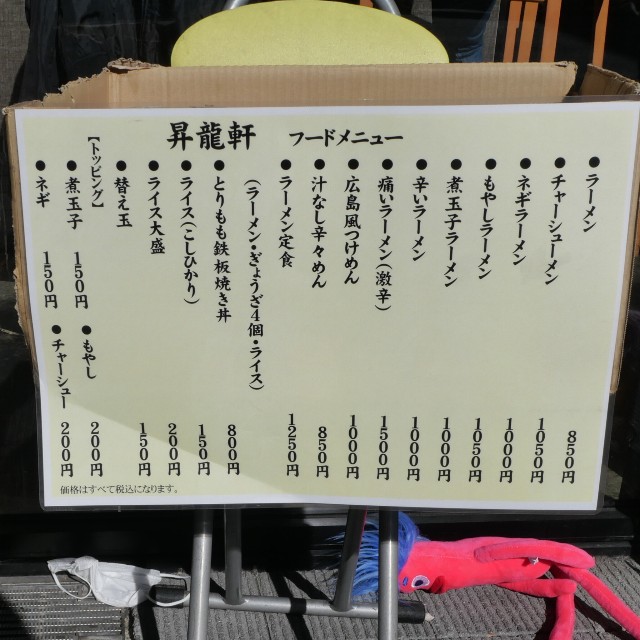 昇龍軒 フードメニュー
●ラーメン 850円
●チャーシューメン 1050円
●ネギラーメン 1000円
●もやしラーメン 1050円
●煮玉子ラーメン 1000円
●辛いラーメン 1000円
●痛いラーメン(激辛) 1500円
●広島風つけめん 1000円
●汁なし辛々めん 850円
●ラーメン定食 1250円
(ラーメン・ぎょうざ4個・ライス)
●とりもも鉄板焼き丼 800円
●ライス(こしひかり) 150円
●ライス大盛 200円
●替え玉 150円
【トッピング】
●煮玉子 150円 ●もやし 200円
●ネギ 150円 ●チャーシュー 200円
価格はすべて税込になります。